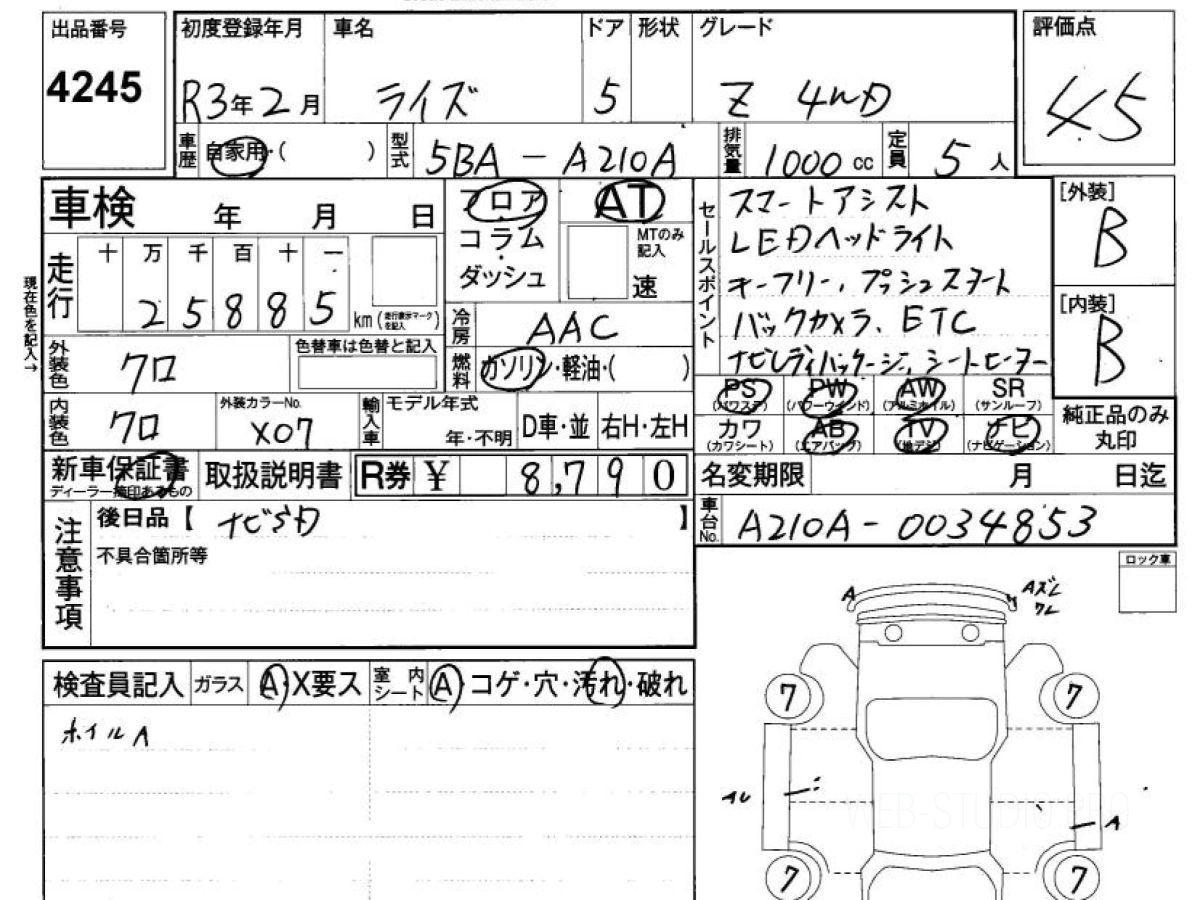 出品番号
4245
初度登録年月
R3年2月
車名
ライズ
ドア
5
形状
グレード
Z 4WD
評価点
45
車歴
自家用・( )
型式
5BA-A210A
排気量
1000 cc
定員
5人
車検 年 月 日
フロア
コラム
ダッシュ
AT
MTのみ
記入
速
セールスポイント
スマートアシスト
LEDヘッドライト
キーフリー、プッシュスタート
バックカメラ、ETC
ナビレディパッケージ、シートヒーター
[外装]
B
[内装]
B
現在色を記入→
走行
十 万 千 百 十 一
2 5 8 8 5
km(走行表示マークを記入)
冷房
AAC
外装色
クロ
色替車は色替と記入
燃料
ガソリン・軽油・( )
PS
(パワステ)
PW
(パワーウインド)
AW
(アルミホイル)
SR
(サンルーフ)
カワ
(カワシート)
AB
(エアバッグ)
TV
(地デジ)
ナビ
(ナビゲーション)
純正品のみ
丸印
内装色
クロ
外装カラーNo.
X07
輸入車
モデル年式
年・不明
D車・並
右H・左H
新車保証書
ディーラー捺印あるもの
取扱説明書
R券 ¥ 8,790
名変期限 月 日迄
注意事項
後日品【 ナビSD 】
不具合箇所等
車台No.
A210A-0034853
ロック車
検査員記入
ガラス
A・X要ス
室内
シート
A・コゲ・穴・汚れ・破れ
ホイルA
A
Aズレ
ワレ
7
7
AU
A
7
7
WEB-STUDIO PRO